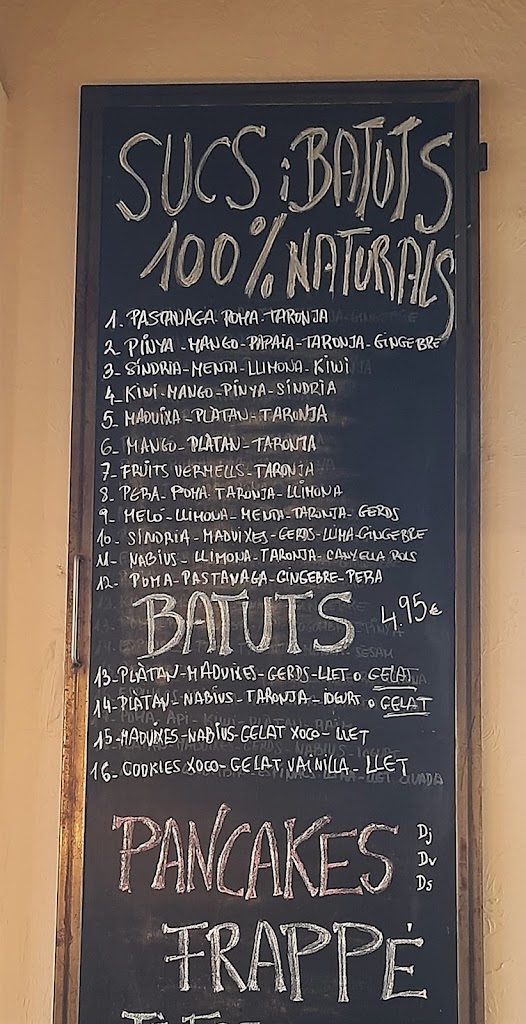 SUCS i BATUTS
100% NATURALS
1. PASTANAGA. POMA. TARONJA
2 PINYA - MANGO - PAPAIA - TARONJA - GINGEBRE
3 - SÍNDRIA - MENTA - LLIMONA - KIWI
4 - KIWI - MANGO - PINYA - SÍNDRIA
5 - MADUIXA - PLATAN - TARONJA
6 - MANGO - PLÀTAN - TARONJA
7 - FRUITS VERMELLS - TARONJA
8 - PERA - POMA. TARONJA - LLIMONA
9 - MELÓ - LLIMONA - MENTA - TARONJA - GERDS
10 - SÍNDRIA - MADUIXES - GERDS - LLIMA - GINGEBRE
11 - NABIUS - LLIMONA - TARONJA - CANYELLA POLS
12 - POMA - PASTANAGA - GINGEBRE - PERA
BATUTS 4.95€
13 - PLÀTAN - MADUIXES - GERDS - LLET o GELAT
14 - PLÀTAN - NABIUS - TARONJA - IOGURT o GELAT
15 - MADUIXES - NABIUS GELAT XOCO - LLET
16 - COOKIES XOCO - GELAT VAINILLA - LLET
PANCAKES
Dj
Dv
Ds
FRAPPÉ